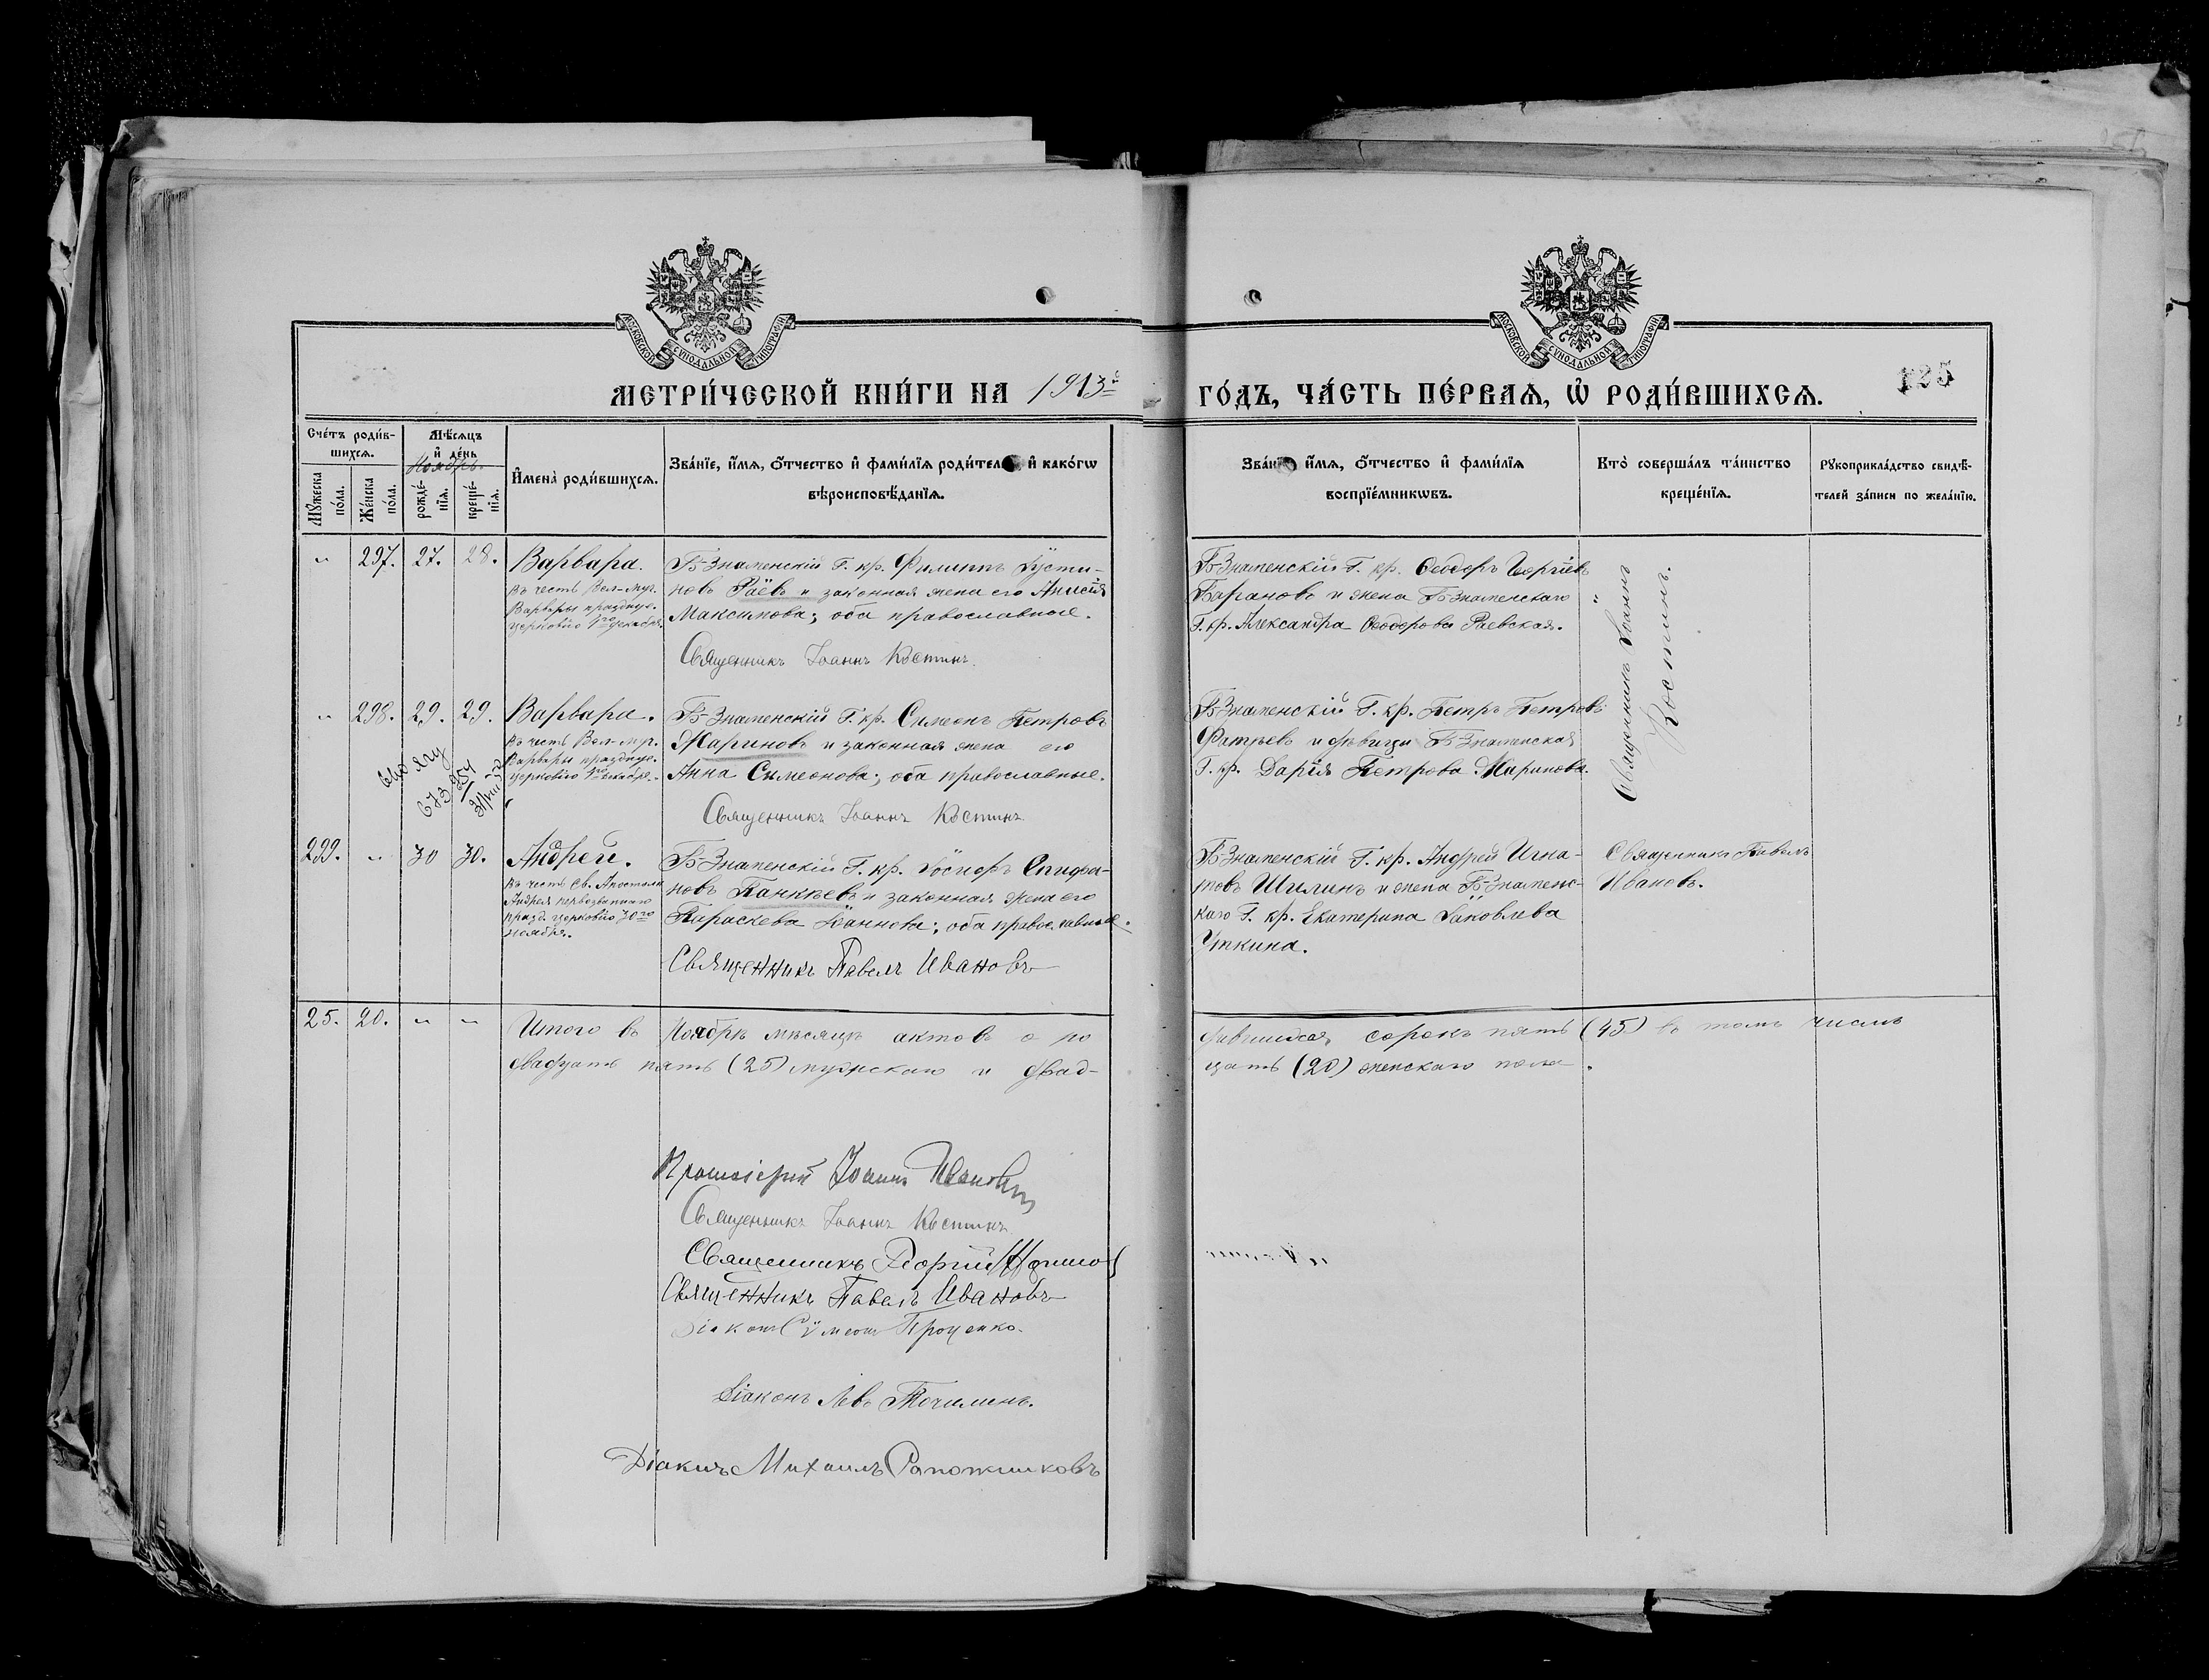 МОСКОВСКОЙ СѴНОДАЛЬНОЙ ТИПОГРАФІИ
МОСКОВСКОЙ СѴНОДАЛЬНОЙ ТИПОГРАФІИ
МЕТРИ́ЧЕСКОЙ КНИ́ГИ НА 1913й
ГО́ДЪ, ЧА́СТЬ ПЕ́РВАѦ, Ѡ҆ РОДИ́ВШИХСѦ.
125
Сче́тъ роди́в-
шихсѧ.
Мꙋ́жеска по́ла.
Же́нска по́ла.
Мѣ́сѧцъ
и҆ де́нь
Ноябрь.
рожде́-
нїѧ.
креще́-
нїѧ.
И҆мена̀ роди́вшихсѧ.
Зва́нїе, и҆́мѧ, ѻ҆́тчество и҆ фами́лїѧ роди́тел и҆ како́гѡ
вѣроисповѣ́данїѧ.
Зва́нї и҆́мѧ, ѻ҆́тчество и҆ фами́лїѧ
воспрїе́мникѡвъ.
Кто̀ соверша́лъ та́инство
креще́нїѧ.
Рꙋкоприкла́дство свидѣ́-
телей за́писи по жела́нїю.
" 297. 27. 28.
Варвара.
въ честь Вел-муч.
Варвары празднуе.
церковію 4го декабря.
Б-Знаменскій Г. кр. Филиппъ Іусти-
новъ Раевъ и законная жена его Анисія
Максимова; оба православные.
Священникъ Іоаннъ Костинъ.
Б-Знаменскій Г. кр. Ѳеодоръ Георгіевъ
Барановъ и жена Б-Знаменскаго
Г. кр. Александра Ѳеодорова Раевская.
Священникъ Іоаннъ
Костинъ.
" 298. 29. 29.
Варвара.
въ честь Вел-муч.
Варвары празднуе.
церковію 4го декабря.
Б-Знаменскій Г. кр. Симеонъ Петровъ
Мариновъ и законная жена его
Анна Симеонова; оба православные.
Священникъ Іоаннъ Костинъ
Б-Знаменскій Г. кр. Петръ Петровъ
и дѣвица Б-Знаменская
Г. кр. Дарія Петрова Маринова.
299. " 30 30.
Андрей.
въ честь св. Апостола
Андрея первозваннаго
празд. церковію 30го
ноября.
Б-Знаменскій Г. кр. Іосифъ Епифа-
новъ Панкѣевъ и законная жена его
Параскева Іоаннова; оба православные.
Священникъ Павелъ Ивановъ
Б-Знаменскій Г. кр. Андрей Игна-
товъ Шилинъ и жена Б-Знаменс-
каго Г. кр. Екатерина Іаковлева
Уткина.
Священникъ Павелъ
Ивановъ.
25. 20. " "
Итого въ Ноябрѣ мѣсяцѣ актовъ о ро
дившихся, сорокъ пять (45) въ томъ числѣ
двадцать пять (25) мужскаго и двад-
цать (20) женскаго пола.
Протоіерей Іоаннъ
Священникъ Іоаннъ Костинъ
Священникъ Георгій
Священникъ Павелъ Ивановъ
Діаконъ Сѵмеонъ Проценко.
Діаконъ Левъ Точилинъ.
Діаконъ Михаилъ Сапожниковъ